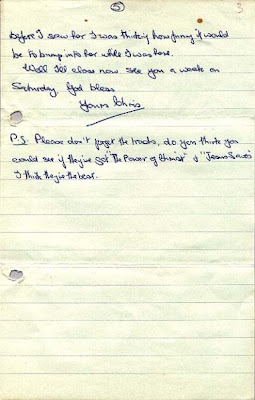 5
3
before I saw her I was thinking how funny it would
be to bump into her while I was here.
Well I'll close now see you a week on
Saturday. God bless
Yours Chris
P.S. Please don't forget the tracts, do you think you
could see if they've got "The Power of Christ" & "Jesus Saves"
I think they're the best.